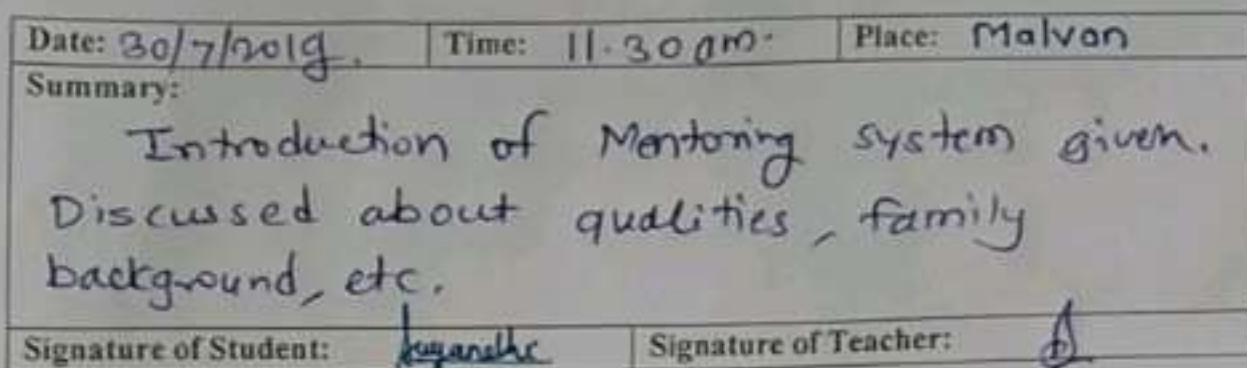 Date: 30/7/2019. Time: 11.30 am. Place: Malvan
Summary:
Introduction of Mentoring system given.
Discussed about qualities, family
background, etc.
Signature of Student: Signature of Teacher: